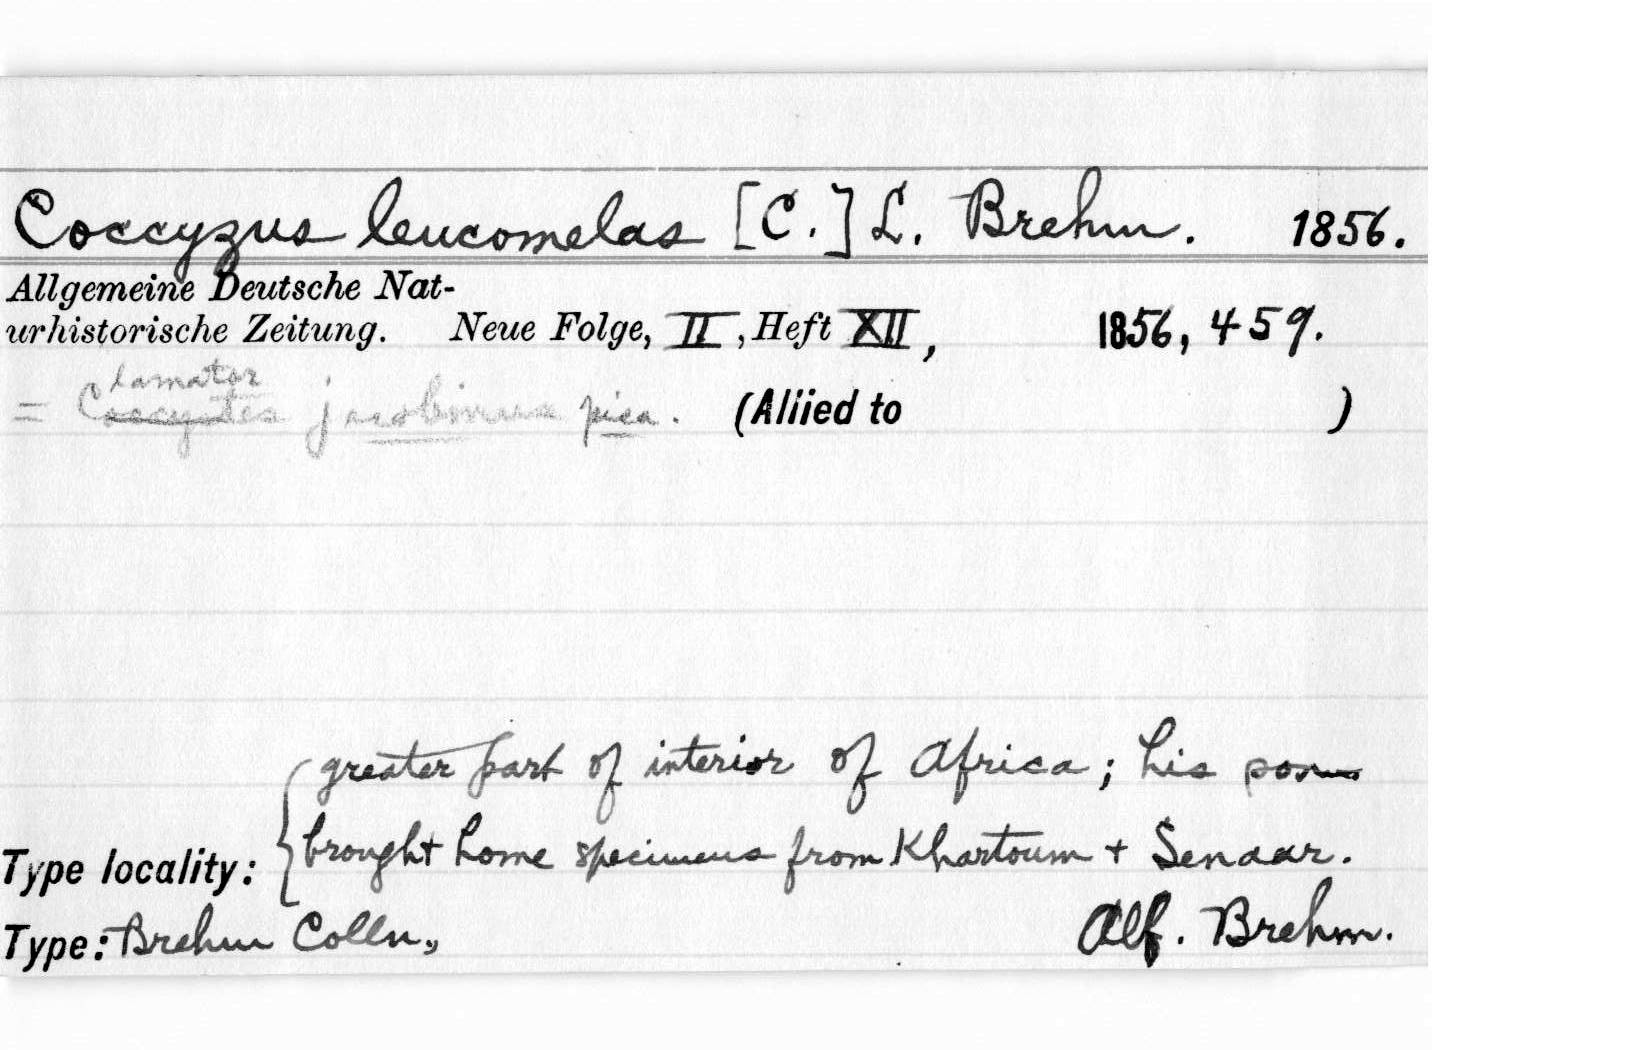 Coccyzus leucomelas [C.] L. Brehm. 1856.
Allgemeine Deutsche Nat-
urhistorische Zeitung. Neue Folge, II, Heft XII, 1856, 459.
lamator
= Coccystes jacobinus pica. (Allied to )
greater part of interior of Africa; his
brought home specimens from Khartoum + Senaar.
Type locality:
Type: Brehm Colln., Alf. Brehm.